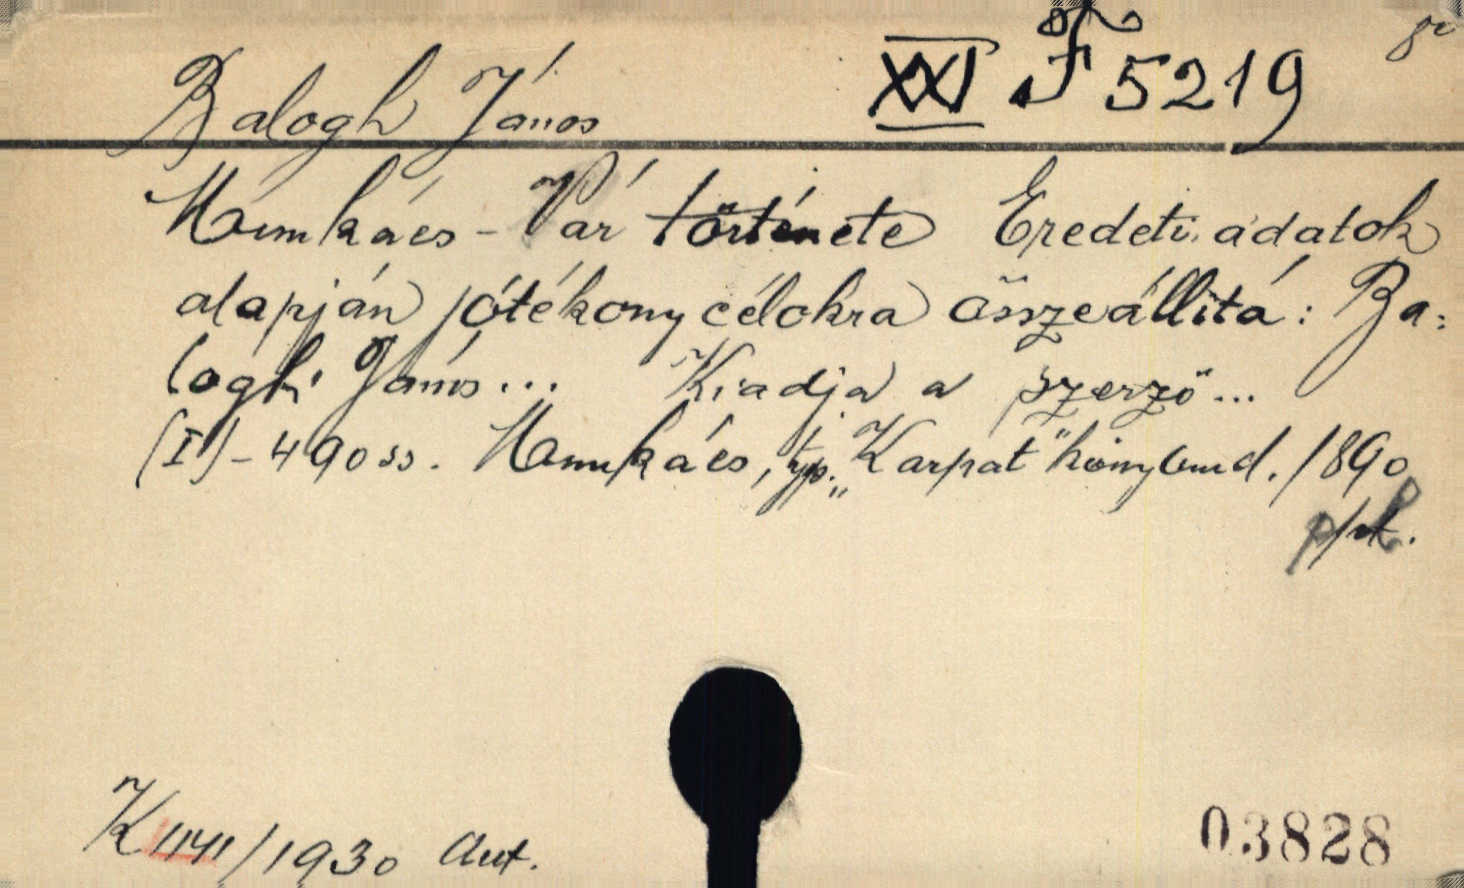 XXI F 5219 8°
Balogh János
Munkács-Vár története Eredeti adatok
alapján jótékony célokra összeállitá: Ba:
logh János... Kiadja a szerző...
(I)-490 ss. Munkács, typ. „Karpat" könyvnd. 1890
K 1141/1930 Aut.
03828